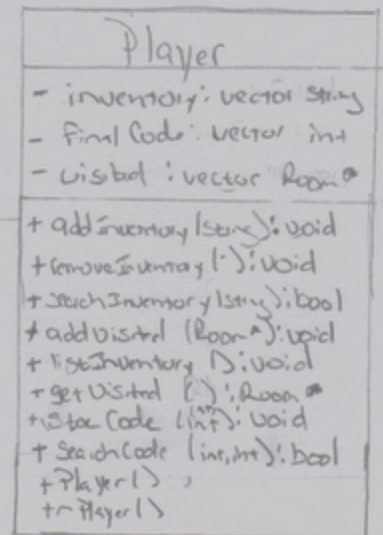 Player
- inventory: vector string
- final Code: vector int
- visited: vector Room*
+ addInventory (string): void
+ removeInventory (): void
+ searchInventory (string): bool
+ addVisited (Room*): void
+ listInventory (): void
+ getVisited (): Room*
Code (int): void
+ SearchCode (int, int): bool
+ Player()
+ ~Player()